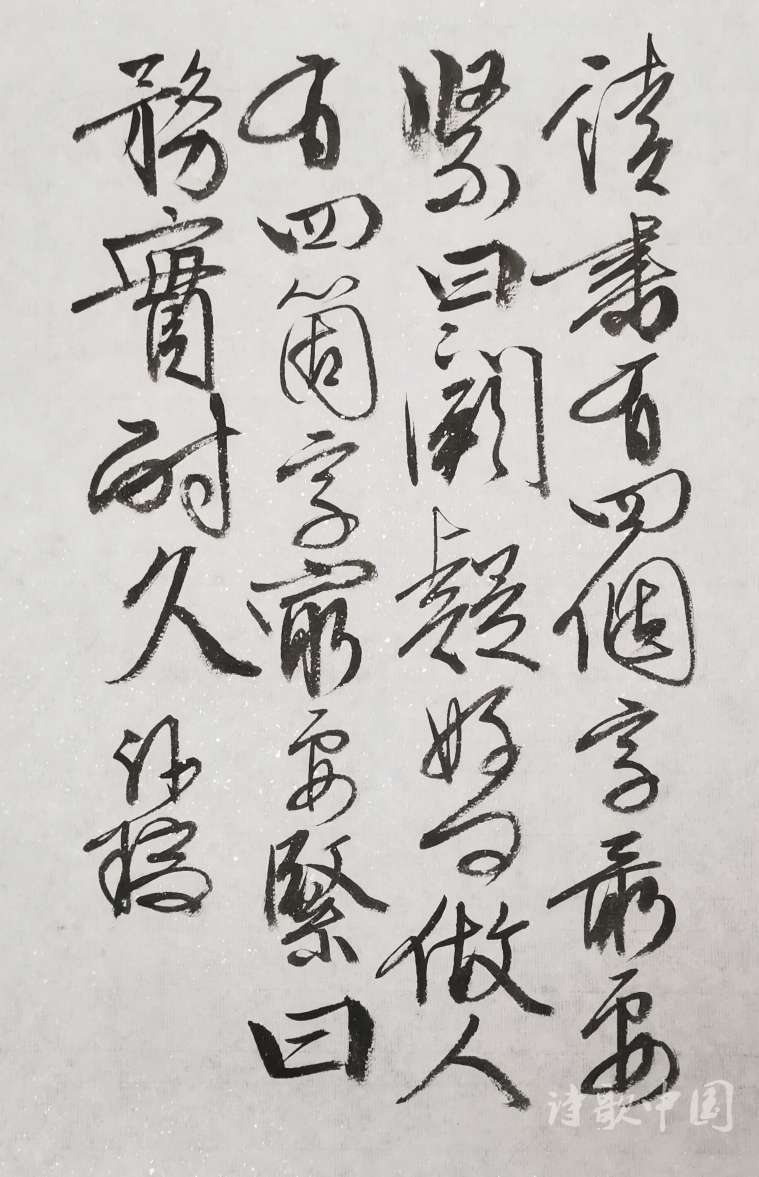 讀書有四個字最要
緊曰闕疑好問做人
有四箇字最要緊曰
務實耐久
诗歌中国